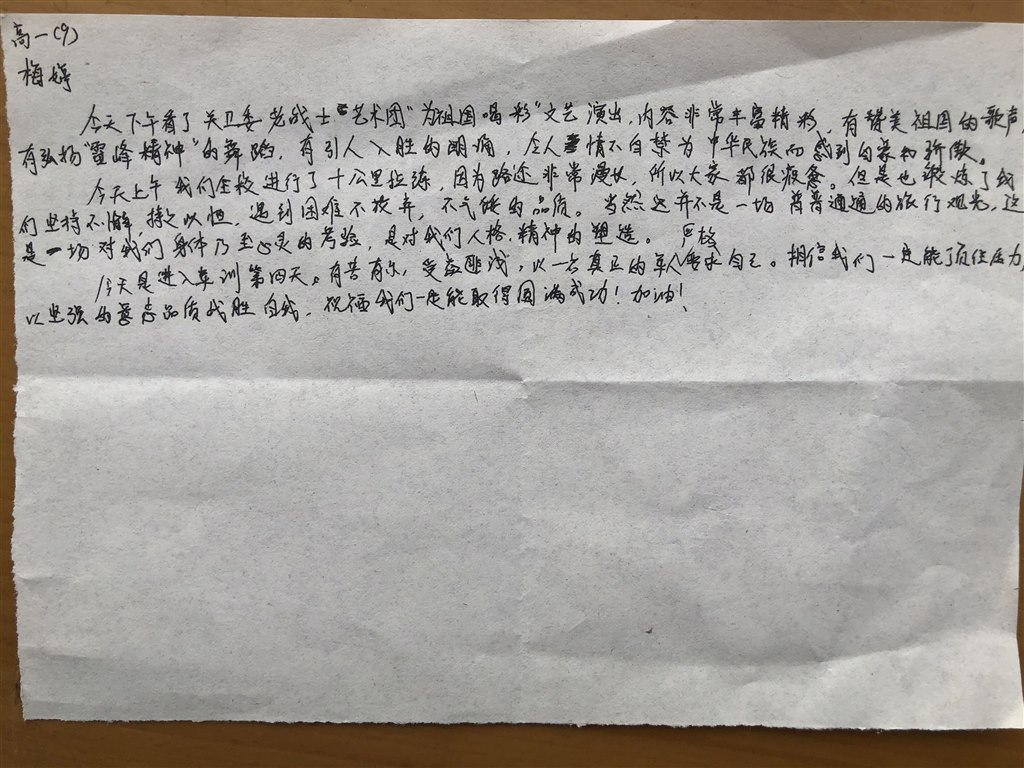 高一(9)
梅婷
今天下午看了关卫委老战士"艺术团"为祖国喝彩"文艺演出,内容非常丰富精彩,有赞美祖国的歌声,
有弘扬"雷锋精神"的舞蹈,有引人入胜的朗诵,令人情不自禁为中华民族而感到自豪和骄傲。
今天上午我们全校进行了十公里拉练,因为路途非常漫长,所以大家都很疲惫。但是也锻炼了我
们坚持不懈,持之以恒,遇到困难不放弃,不气馁的品质。当然这并不是一场普普通通的旅行观光,这
是一场对我们身体乃至心灵的考验,是对我们人格、精神的塑造。
严格
今天是进入军训第四天。有苦有乐,受益匪浅,以一名真正的军人要求自己。相信我们一定能了顶住压力,
以坚强的意志品质战胜自我。祝福我们一定能取得圆满成功!加油!